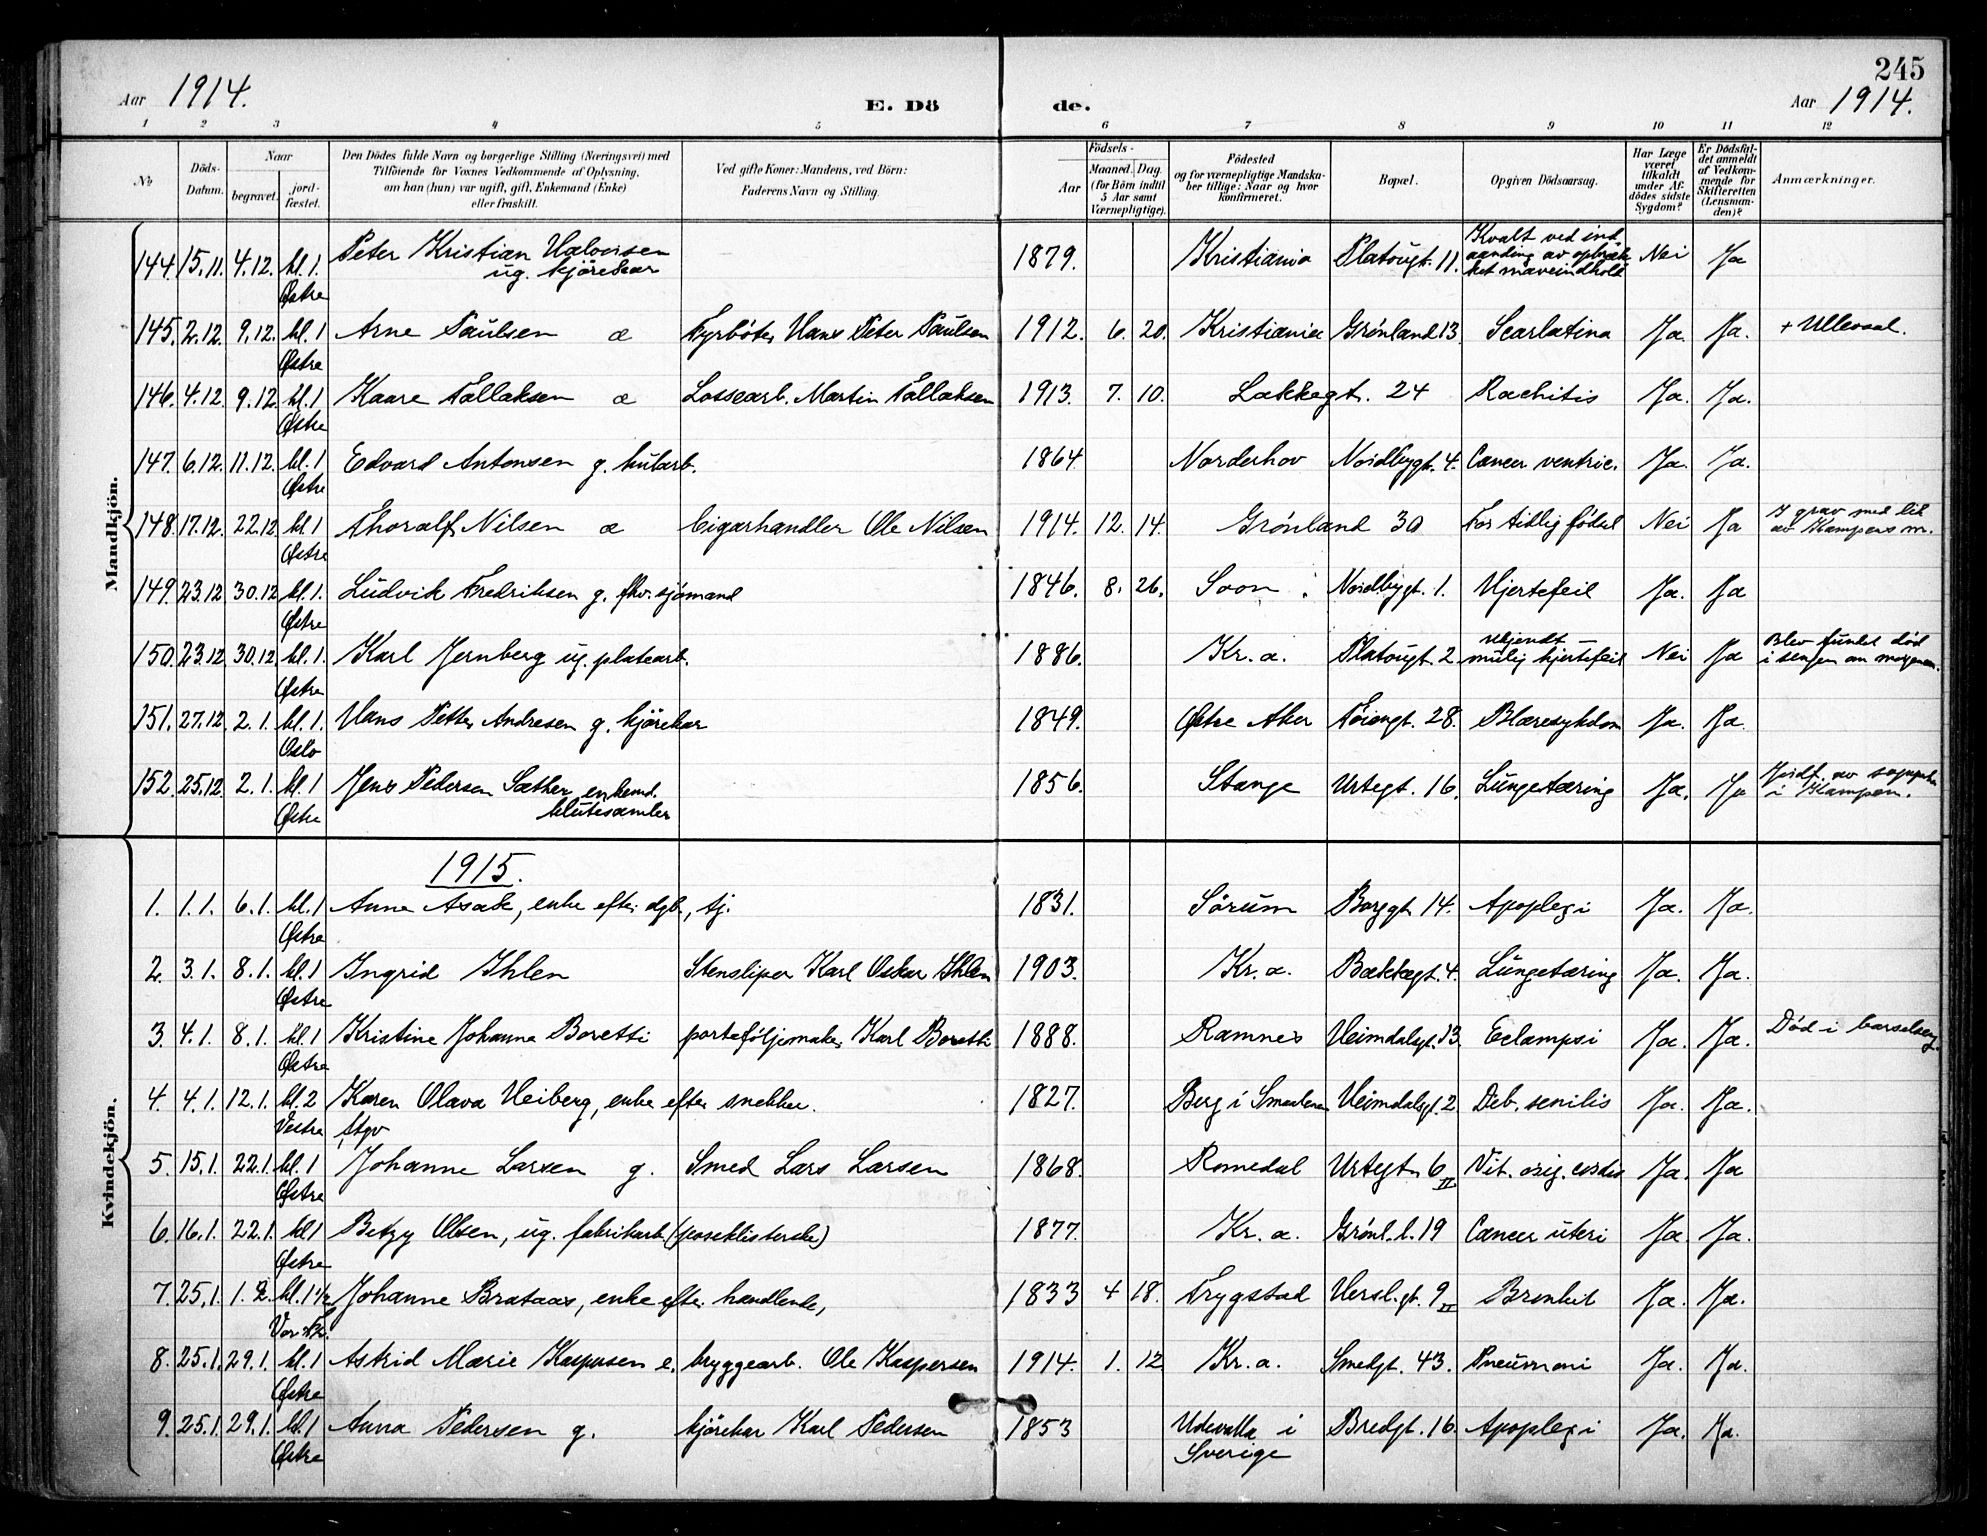 245
Aar 1914.
E. Dö de.
Aar 1914.
1 2 3 4 5 6 7 8 9 10 11 12
No
Döds-Datum.
Naar
begravet.
jord-fæstet.
Den Dödes fulde Navn og borgerlige Stilling (Næringsvei) med
Tilföiende for Voxnes Vedkommende af Oplysning,
om han (hun) var ugift, gift, Enkemand (Enke)
eller fraskilt.
Ved gifte Koner: Mandens, ved Börn:
Faderens Navn og Stilling.
Födsels-
Aar
Maaned. Dag.
(for Börn indtil
5 Aar samt
Værnepligtige).
Födested
og for værnepligtige Mandska-
ber tillige: Naar og hvor
konfirmeret.
Bopæl.
Opgiven Dödsaarsag.
Har Læge
været
tilkaldt
under Af-
dödes sidste
Sygdom?
Er Dödsfal-
det anmeldt
af Vedkom-
mende for
Skifteretten
(Lensman-
den)?
Anmærkninger.
Mandkjön.
144. 15.11. 4.12. kl. 1. Østre Peter Kristian Halvorsen ug. kjörekar 1879. Kristiania Platougt. 11. Kvalt ved ind-aanding av opbræk-ket maveindhold Nei Ja
145. 2.12. 9.12. kl. 1 Østre Arne Paulsen æ Fyrböter Hans Peter Paulsen 1912. 6. 20. Kristiania Grønland 13. Scarlatina Ja. Ja. + Ullevaal.
146. 4.12 9.12 kl. 1 Østre Kaare Tallaksen æ Lossearb. Martin Tallaksen 1913. 7. 10. Lakkegt. 24 Rachitis Ja. Ja.
147. 6.12. 11.12. kl. 1 Østre Edvard Antonsen g. kularb. 1864 Norderhov Nordbygt. 4. Cancer ventric. Ja. Ja.
148. 17.12. 22.12 kl. 1 Østre Thoralf Nilsen æ Cigarhandler Ole Nilsen 1914. 12. 14. Grønland 30 For tidlig født Nei Ja I grav med lik av Kampens m.
149. 23.12 30.12 kl. 1. Østre Ludvik Fredriksen g. fhv. sjömand 1846. 8. 26. Soon Nordbygt. 1. Hjertefeil Ja. Ja
150. 23.12 30.12. kl. 1. Østre Karl Jernberg ug. platearb. 1886. Kr.a. Platougt. 2 ukjendt mulig hjertefeil Nei Ja Blev fundet död i sengen om morgenen.
151. 27.12. 2.1. kl. 1. Oslo Hans Petter Andresen g. kjörekar 1849. Østre Aker Töiengt. 28. Blæresykdom Ja. Ja.
152. 25.12. 2.1. kl. 1 Østre Jens Pedersen Sæther enkemd. klutesamler 1856. Stange Urtegt. 16. Lungetæring Ja. Ja Jordf. av sogneprn i Kampen.
1915.
Kvindekjön.
1. 1.1. 6.1. kl. 1 Østre Anna Asak, enke efter dgb., tj. 1831. Sörum Borggt. 14. Apoplexi Ja. Ja.
2. 3.1. 8.1. kl. 1 Østre Ingrid Ihlen Stensliper Karl Oskar Ihlen 1903. Kr.a. Bakkegt. 4. Lungetæring Ja. Ja.
3. 4.1. 8.1. kl. 1 Østre Kristine Johanne Boretti porteföljemaker Karl Boretti 1888. Ramnes Heimdalsgt. 13. Eclampsi Ja. Ja. Död i barselseng.
4. 4.1. 12.1. kl. 2 Vestre Karen Olava Heiberg, enke efter snekker. 1827. Berg i Smaalenene Heimdalsgt. 2 Deb. senilis Ja. Ja.
5. 15.1. 22.1. kl. 1 Østre Johanne Larsen g. Smed Lars Larsen 1868. Romedal Urtegt. 6 II Vit. orig. cordis Ja. Ja
6. 16.1. 22.1. kl. 1 Østre Betzy Olsen, ug. fabrikarb. (poseklisterske) 1877. Kr.a. Grønl.l. 19 Cancer uteri Ja. Ja.
7. 25.1. 1.2. kl. 1 1/2 Vor Fr. Johanne Brataas, enke efter handlende, 1833 4 18. Trygstad Hersl.gt. 9 II Bronkit Ja. Ja.
8. 25.1. 29.1. kl. 1 Østre Astrid Marie Kaspersen e. bryggearb. Ole Kaspersen 1914. 1. 12 Kr.a. Smedgt. 43. Pneumoni Ja. Ja.
9. 25.1. 29.1. kl. 1 Østre Anna Pedersen g. kjörekar Karl Pedersen 1853 Udevalla i Sverige Bredgt. 16. Apoplexi Ja. Ja.